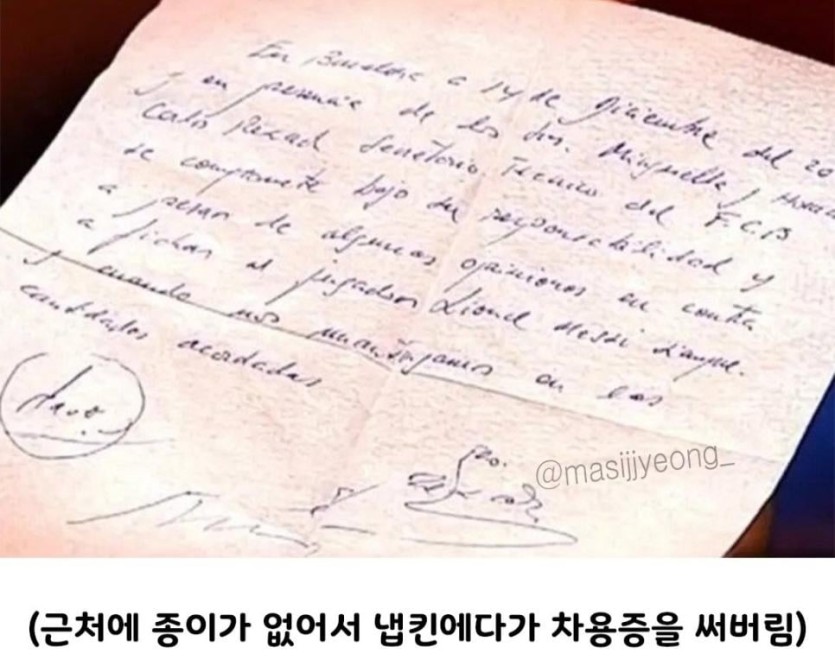 En Barcelona a 14 de Diciembre del 20
y en presencia de los Srs. Minguella y Horaci
Carlos Rexach Secretario Técnico del F.C.B
se compromete bajo su responsabilidad y
a pesar de algunas opiniones en contra
a fichar al jugador Lionel Messi
y cuando nos mantengamos en las
cantidades acordadas
@masijjyeong_
(근처에 종이가 없어서 냅킨에다가 차용증을 써버림)